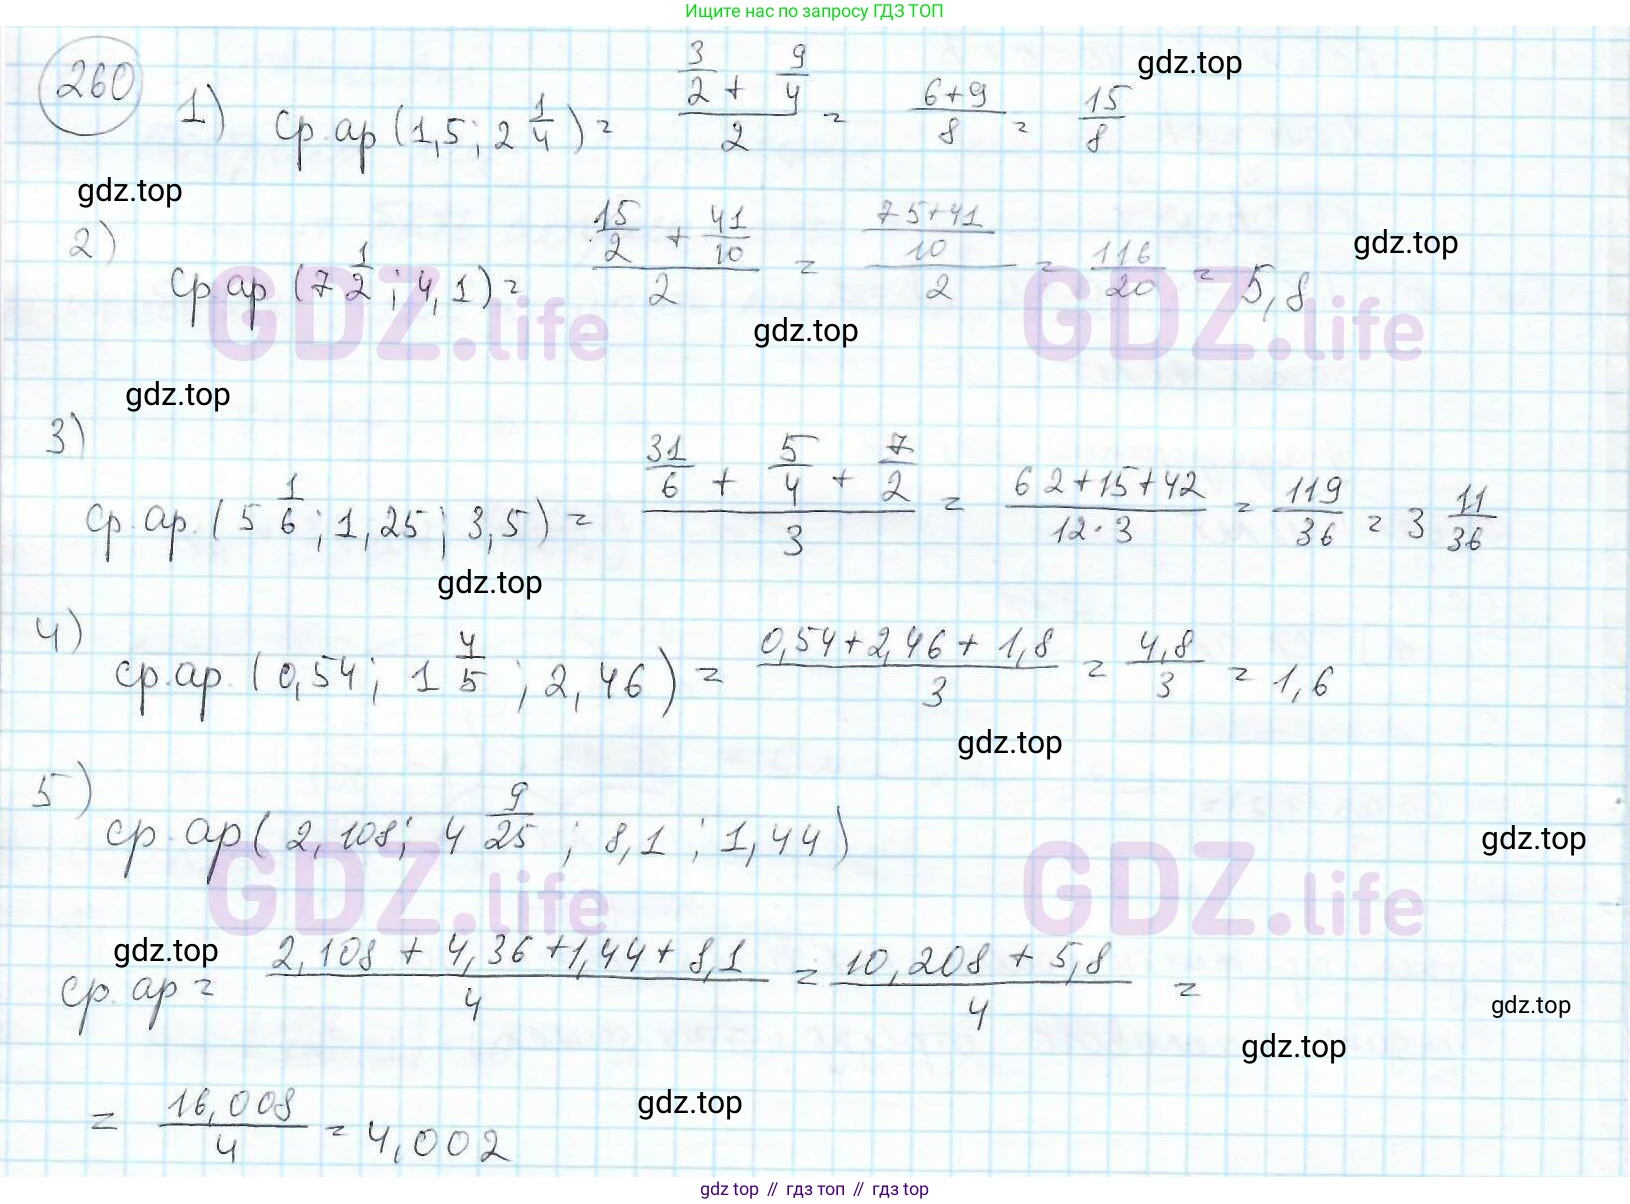 Ищите нас по запросу ГДЗ ТОП
260
gdz.top
1) ср.ар (1,5; 2 1/4) = (3/2 + 9/4)/2 = (6+9)/8 = 15/8
gdz.top
gdz.top
2) ср.ар (7 1/2; 4,1) = (15/2 + 41/10)/2 = ((75+41)/10)/2 = 116/20 = 5,8
GDZ.life GDZ.life
gdz.top
gdz.top
3) ср.ар. (5 1/6; 1,25; 3,5) = (31/6 + 5/4 + 7/2)/3 = (62+15+42)/(12·3) = 119/36 = 3 11/36
gdz.top
4) ср.ар. (0,54; 1 4/5; 2,46) = (0,54+2,46+1,8)/3 = 4,8/3 = 1,6
gdz.top
5) ср.ар (2,108; 4 9/25; 8,1; 1,44)
gdz.top
GDZ.life GDZ.life
gdz.top
ср.ар = (2,108 + 4,36 + 1,44 + 8,1)/4 = (10,208 + 5,8)/4 =
gdz.top
gdz.top
= 16,008/4 = 4,002
gdz.top
gdz top // гдз топ // гдз top